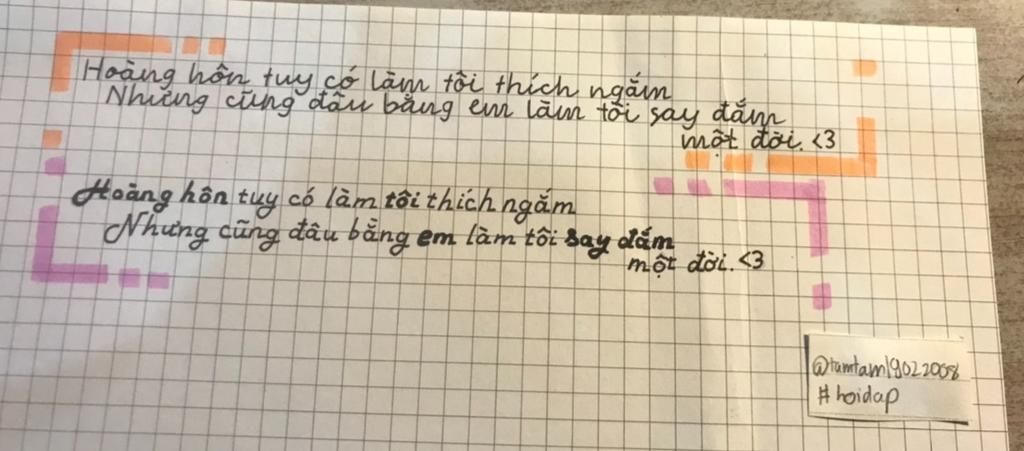 Hoàng hôn tuy có làm tôi thích ngắm
Nhưng cũng đâu bằng em làm tôi say đắm
một đời. <3
Hoàng hôn tuy có làm tôi thích ngắm
Nhưng cũng đâu bằng em làm tôi say đắm
một đời. <3
@tamtam19022008
#hoidap